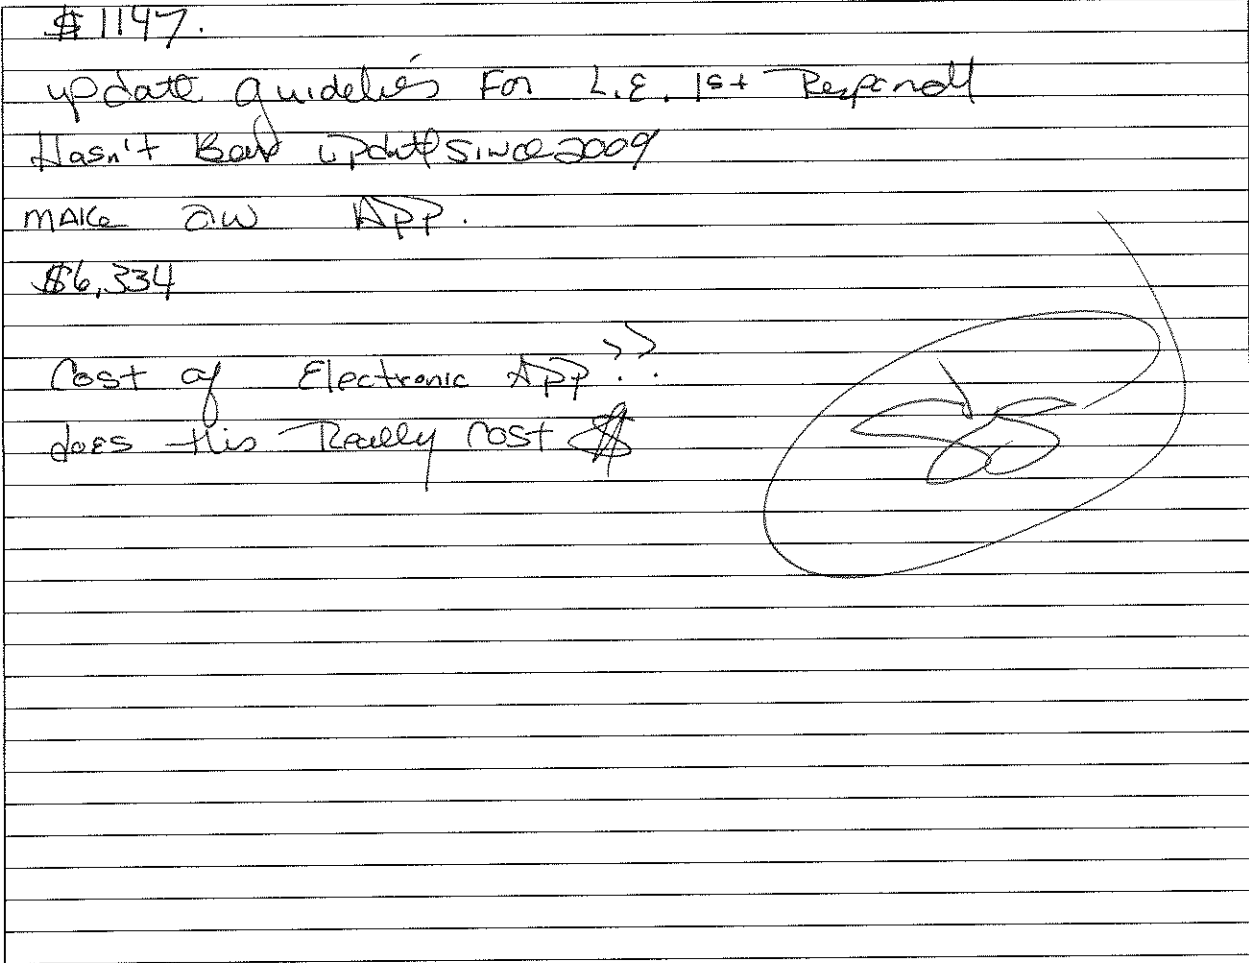 $1147.
update guidelies For L.E. 1st Respond
Hasn't Been update since 2009
MAKe an App.
$6,334
Cost of Electronic App ??
does this Really Cost $